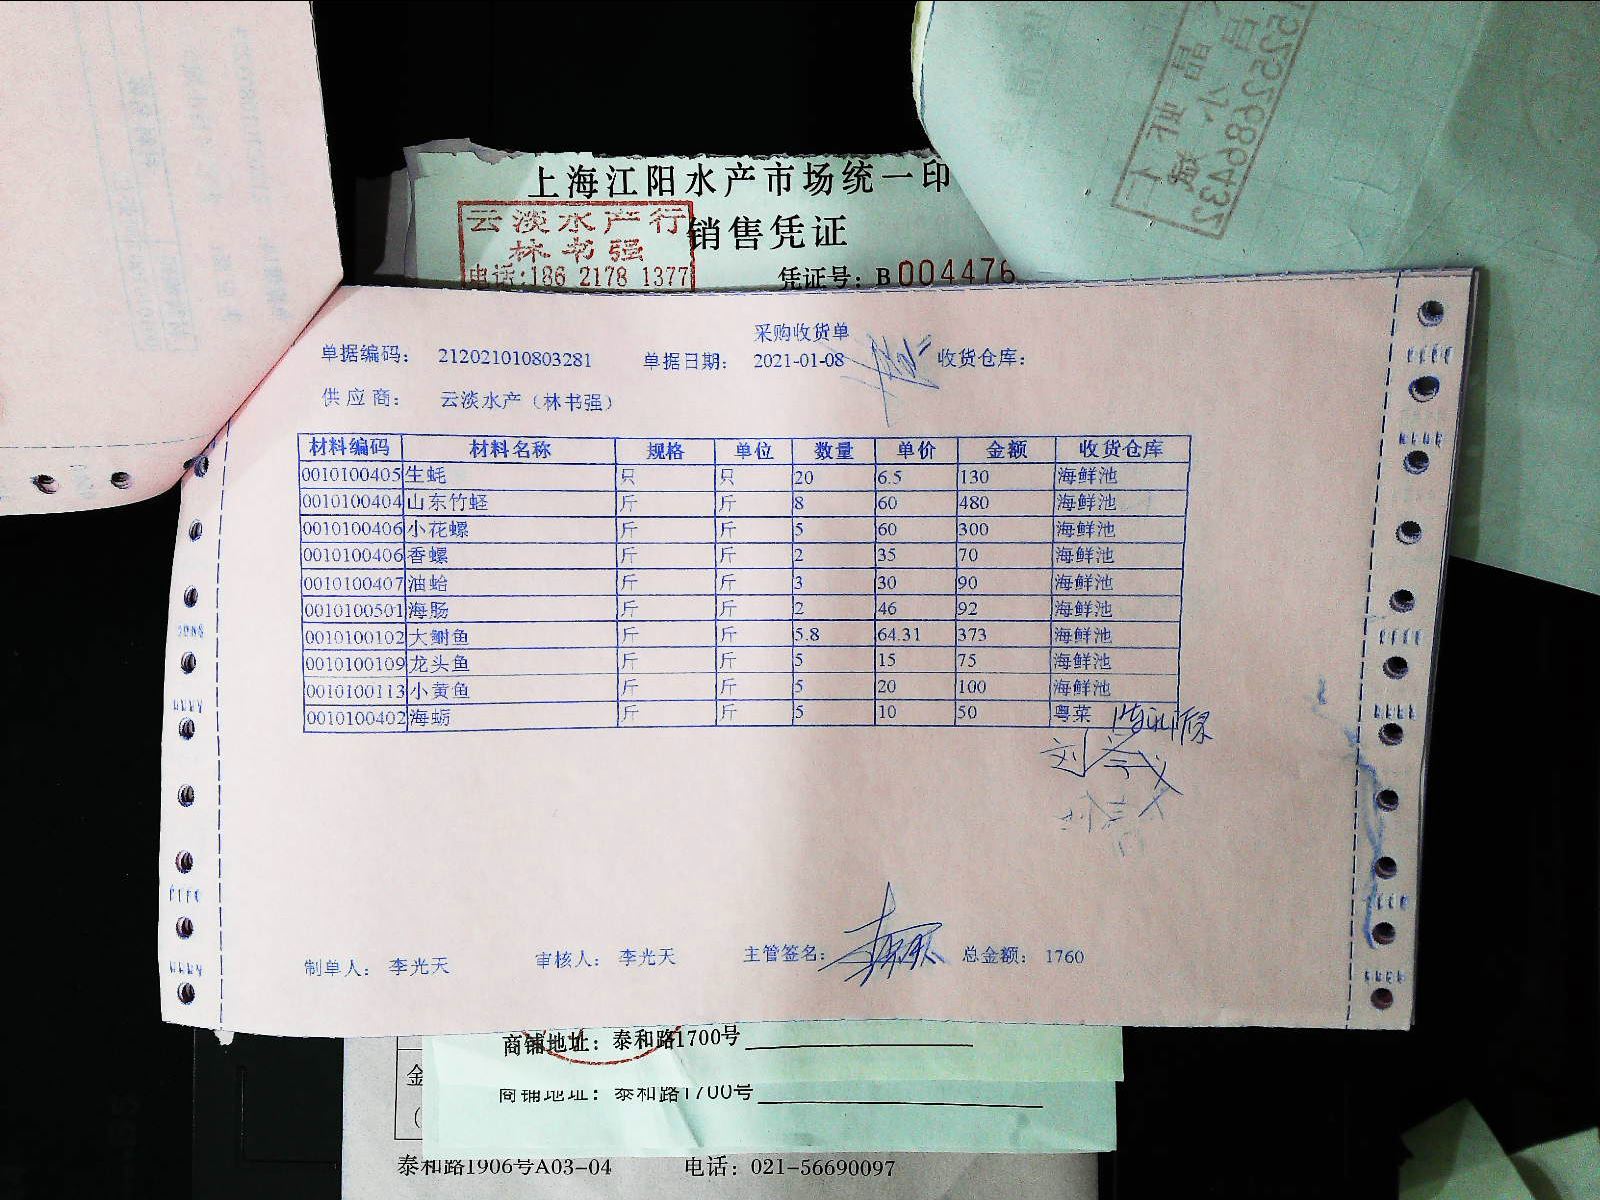 上海江阳水产市场统一印
云淡水产行
林书强
电话:186 2178 1377
销售凭证
凭证号：B004476
15252686432
采购收货单
单据编码： 212021010803281 单据日期： 2021-01-08 收货仓库：
供应商： 云淡水产（林书强）
材料编码 材料名称 规格 单位 数量 单价 金额 收货仓库
0010100405 生蚝 只 只 20 6.5 130 海鲜池
0010100404 山东竹蛏 斤 斤 8 60 480 海鲜池
0010100406 小花螺 斤 斤 5 60 300 海鲜池
0010100406 香螺 斤 斤 2 35 70 海鲜池
0010100407 油蛤 斤 斤 3 30 90 海鲜池
0010100501 海肠 斤 斤 2 46 92 海鲜池
0010100102 大鲥鱼 斤 斤 5.8 64.31 373 海鲜池
0010100109 龙头鱼 斤 斤 5 15 75 海鲜池
0010100113 小黄鱼 斤 斤 5 20 100 海鲜池
0010100402 海蛎 斤 斤 5 10 50 粤菜
制单人： 李光天 审核人： 李光天 主管签名： 总金额： 1760
商铺地址：泰和路1700号
商铺地址：泰和路1700号
金
泰和路1906号A03-04 电话：021-56690097